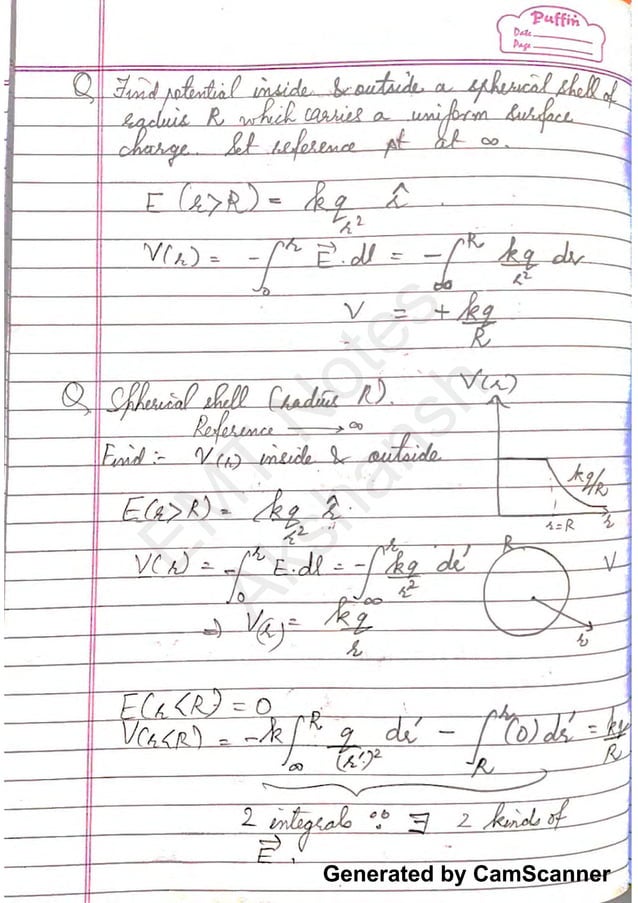 Puffin
Date
Page
Q Find potential inside & outside a spherical shell of
radius R which carries a uniform surface
charge. Set reference pt at ∞.
E (r>R) = kq/r² r̂
V(r) = -∫₀ʳ E⃗.dl = -∫_∞^R kq/r² dr
V = + kq/R
Q Spherical shell (radius R).
Reference → ∞
Find :- V(r) inside & outside
V(r)
kq/R
r=R
r
E(r>R) = kq/r² r̂.
V(r) = -∫₀ʳ E.dl = -∫_∞^r kq/r² dr'
⇒ V(r) = kq/r
R
V
r
E(r<R) = 0
V(r<R) = -k∫_∞^R q/(r')² dr' - ∫_R^r (0) dr' = kq/R
2 integrals ∵ ∃ 2 kinds of
E⃗.
EMT Notes
Akshansh
Generated by CamScanner